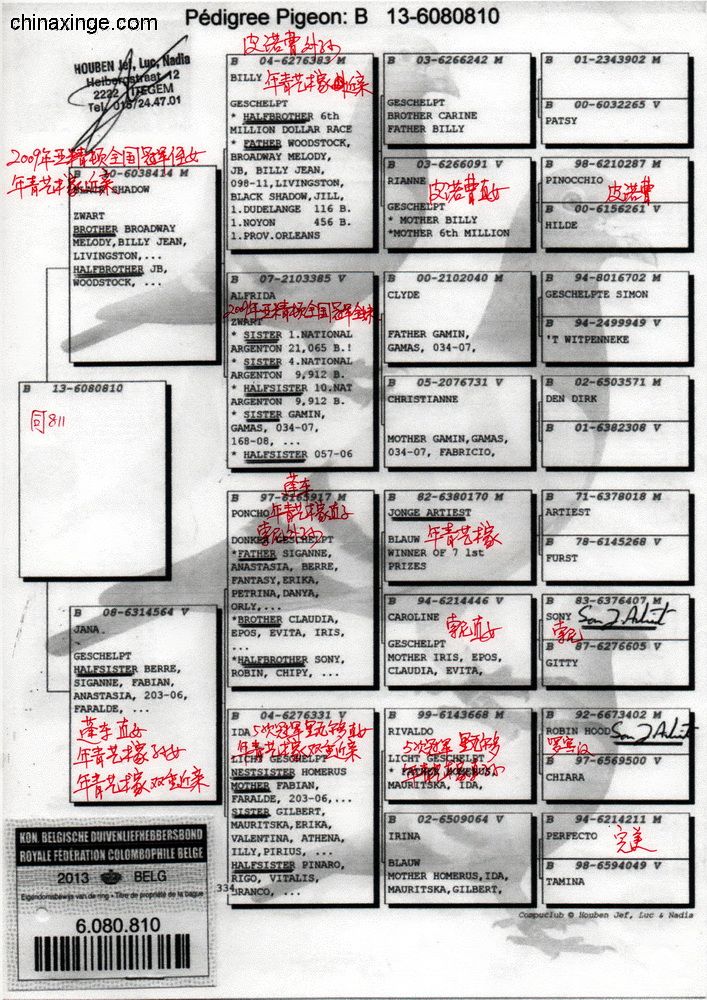 chinaxinge.com
Pédigree Pigeon: B 13-6080810
HOUBEN Jef, Luc, Nadia
Heibergstraat 12
2222 ITEGEM
Tel. 015/24.47.01
2009年亚精顿全国冠军侄女
年青艺术家近亲
B 10-6038414 M
BLACK SHADOW
ZWART
BROTHER BROADWAY
MELODY,BILLY JEAN,
LIVINGSTON,...
HALFBROTHER JB,
WOODSTOCK, ...
B 13-6080810
同811
B 08-6314564 V
JANA
GESCHELPT
HALFSISTER BERRE,
SIGANNE, FABIAN,
ANASTASIA, 203-06,
FARALDE, ...
蓬车直女
年青艺术家孙女
年青艺术家双重近亲
皮诺曹外孙
B 04-6276383 M
BILLY
年青艺术家近亲
GESCHELPT
* HALFBROTHER 6th
MILLION DOLLAR RACE
* FATHER WOODSTOCK,
BROADWAY MELODY,
JB, BILLY JEAN,
098-11,LIVINGSTON,
BLACK SHADOW,JILL,
1.DUDELANGE 116 B.
1.NOYON 456 B.
1.PROV.ORLEANS
B 07-2103385 V
ALFRIDA
2009年亚精顿全国冠军全姊
ZWART
* SISTER 1.NATIONAL
ARGENTON 21,065 B.!
* SISTER 4.NATIONAL
ARGENTON 9,912 B.
* HALFSISTER 10.NAT
ARGENTON 9,912 B.
* SISTER GAMIN,
GAMAS, 034-07,
168-08, ...
* HALFSISTER 057-06
蓬车
B 97-6165917 M
PONCHO
年青艺术家直子
索尼外孙
DONKER GESCHELPT
*FATHER SIGANNE,
ANASTASIA, BERRE,
FANTASY,ERIKA,
PETRINA,DANYA,
ORLY,...
*BROTHER CLAUDIA,
EPOS, EVITA, IRIS,
...
*HALFBROTHER SONY,
ROBIN, CHIPY, ...
B 04-6276331 V
IDA
年青艺术家双重近亲
LICHT GESCHELPT
NESTSISTER HOMERUS
MOTHER FABIAN,
FARALDE, 203-06,...
SISTER GILBERT,
MAURITSKA,ERIKA,
VALENTINA, ATHENA,
ILLY,PIRIUS, ...
HALFSISTER PINARO,
RIGO, VITALIS,
BRANCO, ...
B 03-6266242 M
GESCHELPT
BROTHER CARINE
FATHER BILLY
B 03-6266091 V
RIANNE
皮诺曹直女
GESCHELPT
* MOTHER BILLY
*MOTHER 6th MILLION
B 00-2102040 M
CLYDE
FATHER GAMIN,
GAMAS, 034-07,
B 05-2076731 V
CHRISTIANNE
MOTHER GAMIN,GAMAS,
034-07, FABRICIO,
B 82-6380170 M
JONGE ARTIEST
BLAUW
年青艺术家
WINNER OF 7 1st
PRIZES
B 94-6214446 V
CAROLINE
索尼直女
GESCHELPT
MOTHER IRIS, EPOS,
CLAUDIA, EVITA,
B 99-6143668 M
RIVALDO
LICHT GESCHELPT
* FATHER HOMERUS,
MAURITSKA, IDA,
B 02-6509064 V
IRINA
BLAUW
MOTHER HOMERUS,IDA,
MAURITSKA,GILBERT,
B 01-2343902 M
B 00-6032265 V
PATSY
B 98-6210287 M
PINOCCHIO
皮诺曹
B 00-6156261 V
HILDE
B 94-8016702 M
GESCHELPTE SIMON
B 94-2499949 V
'T WITPENNEKE
B 02-6503571 M
DEN DIRK
B 01-6382308 V
B 71-6378018 M
ARTIEST
B 78-6145268 V
FURST
B 83-6376407 M
SONY
索尼
B 87-6276605 V
GITTY
B 92-6673402 M
ROBIN HOOD
罗宾汉
B 97-6569500 V
CHIARA
B 94-6214211 M
PERFECTO
完美
B 98-6594049 V
TAMINA
Compuclub © Houben Jef, Luc & Nadia
334
KON. BELGISCHE DUIVENLIEFHEBBERSBOND
ROYALE FÉDÉRATION COLOMBOPHILE BELGE
2013 BELG
Eigendomsbewijs van de ring - Titre de propriété de la bague
6.080.810